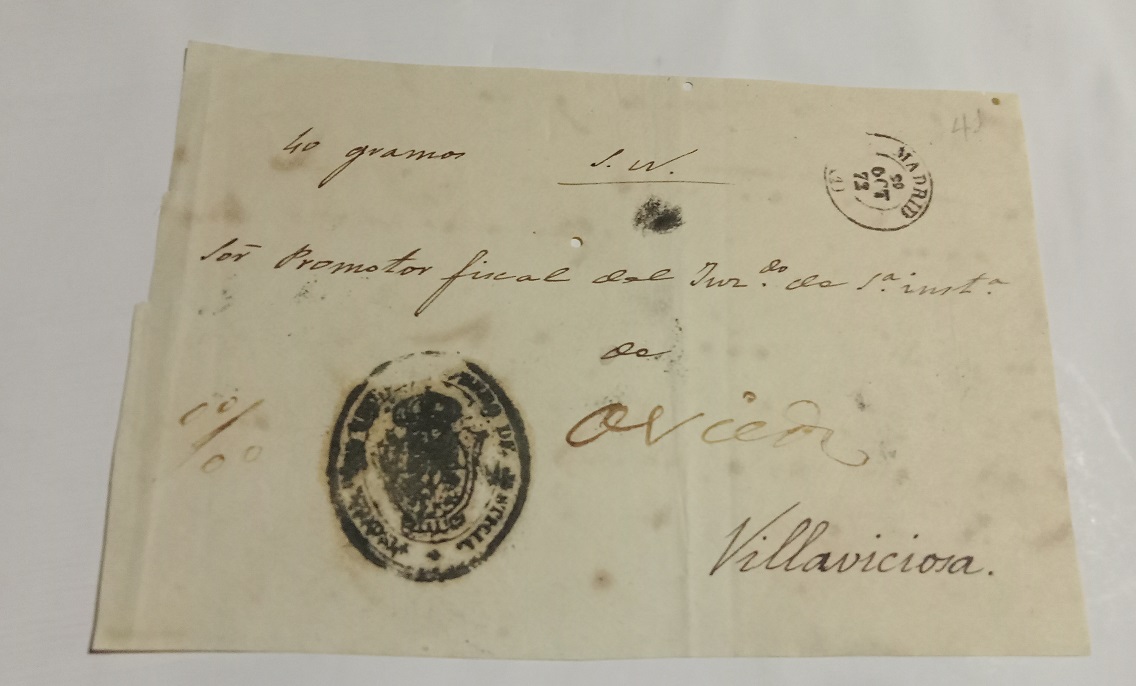 40 gramos S. N.
41
MADRID
OCT
73
Sor Promotor fiscal del Juz.do de 1ª inst.ª
de
Oviedo
Villaviciosa.